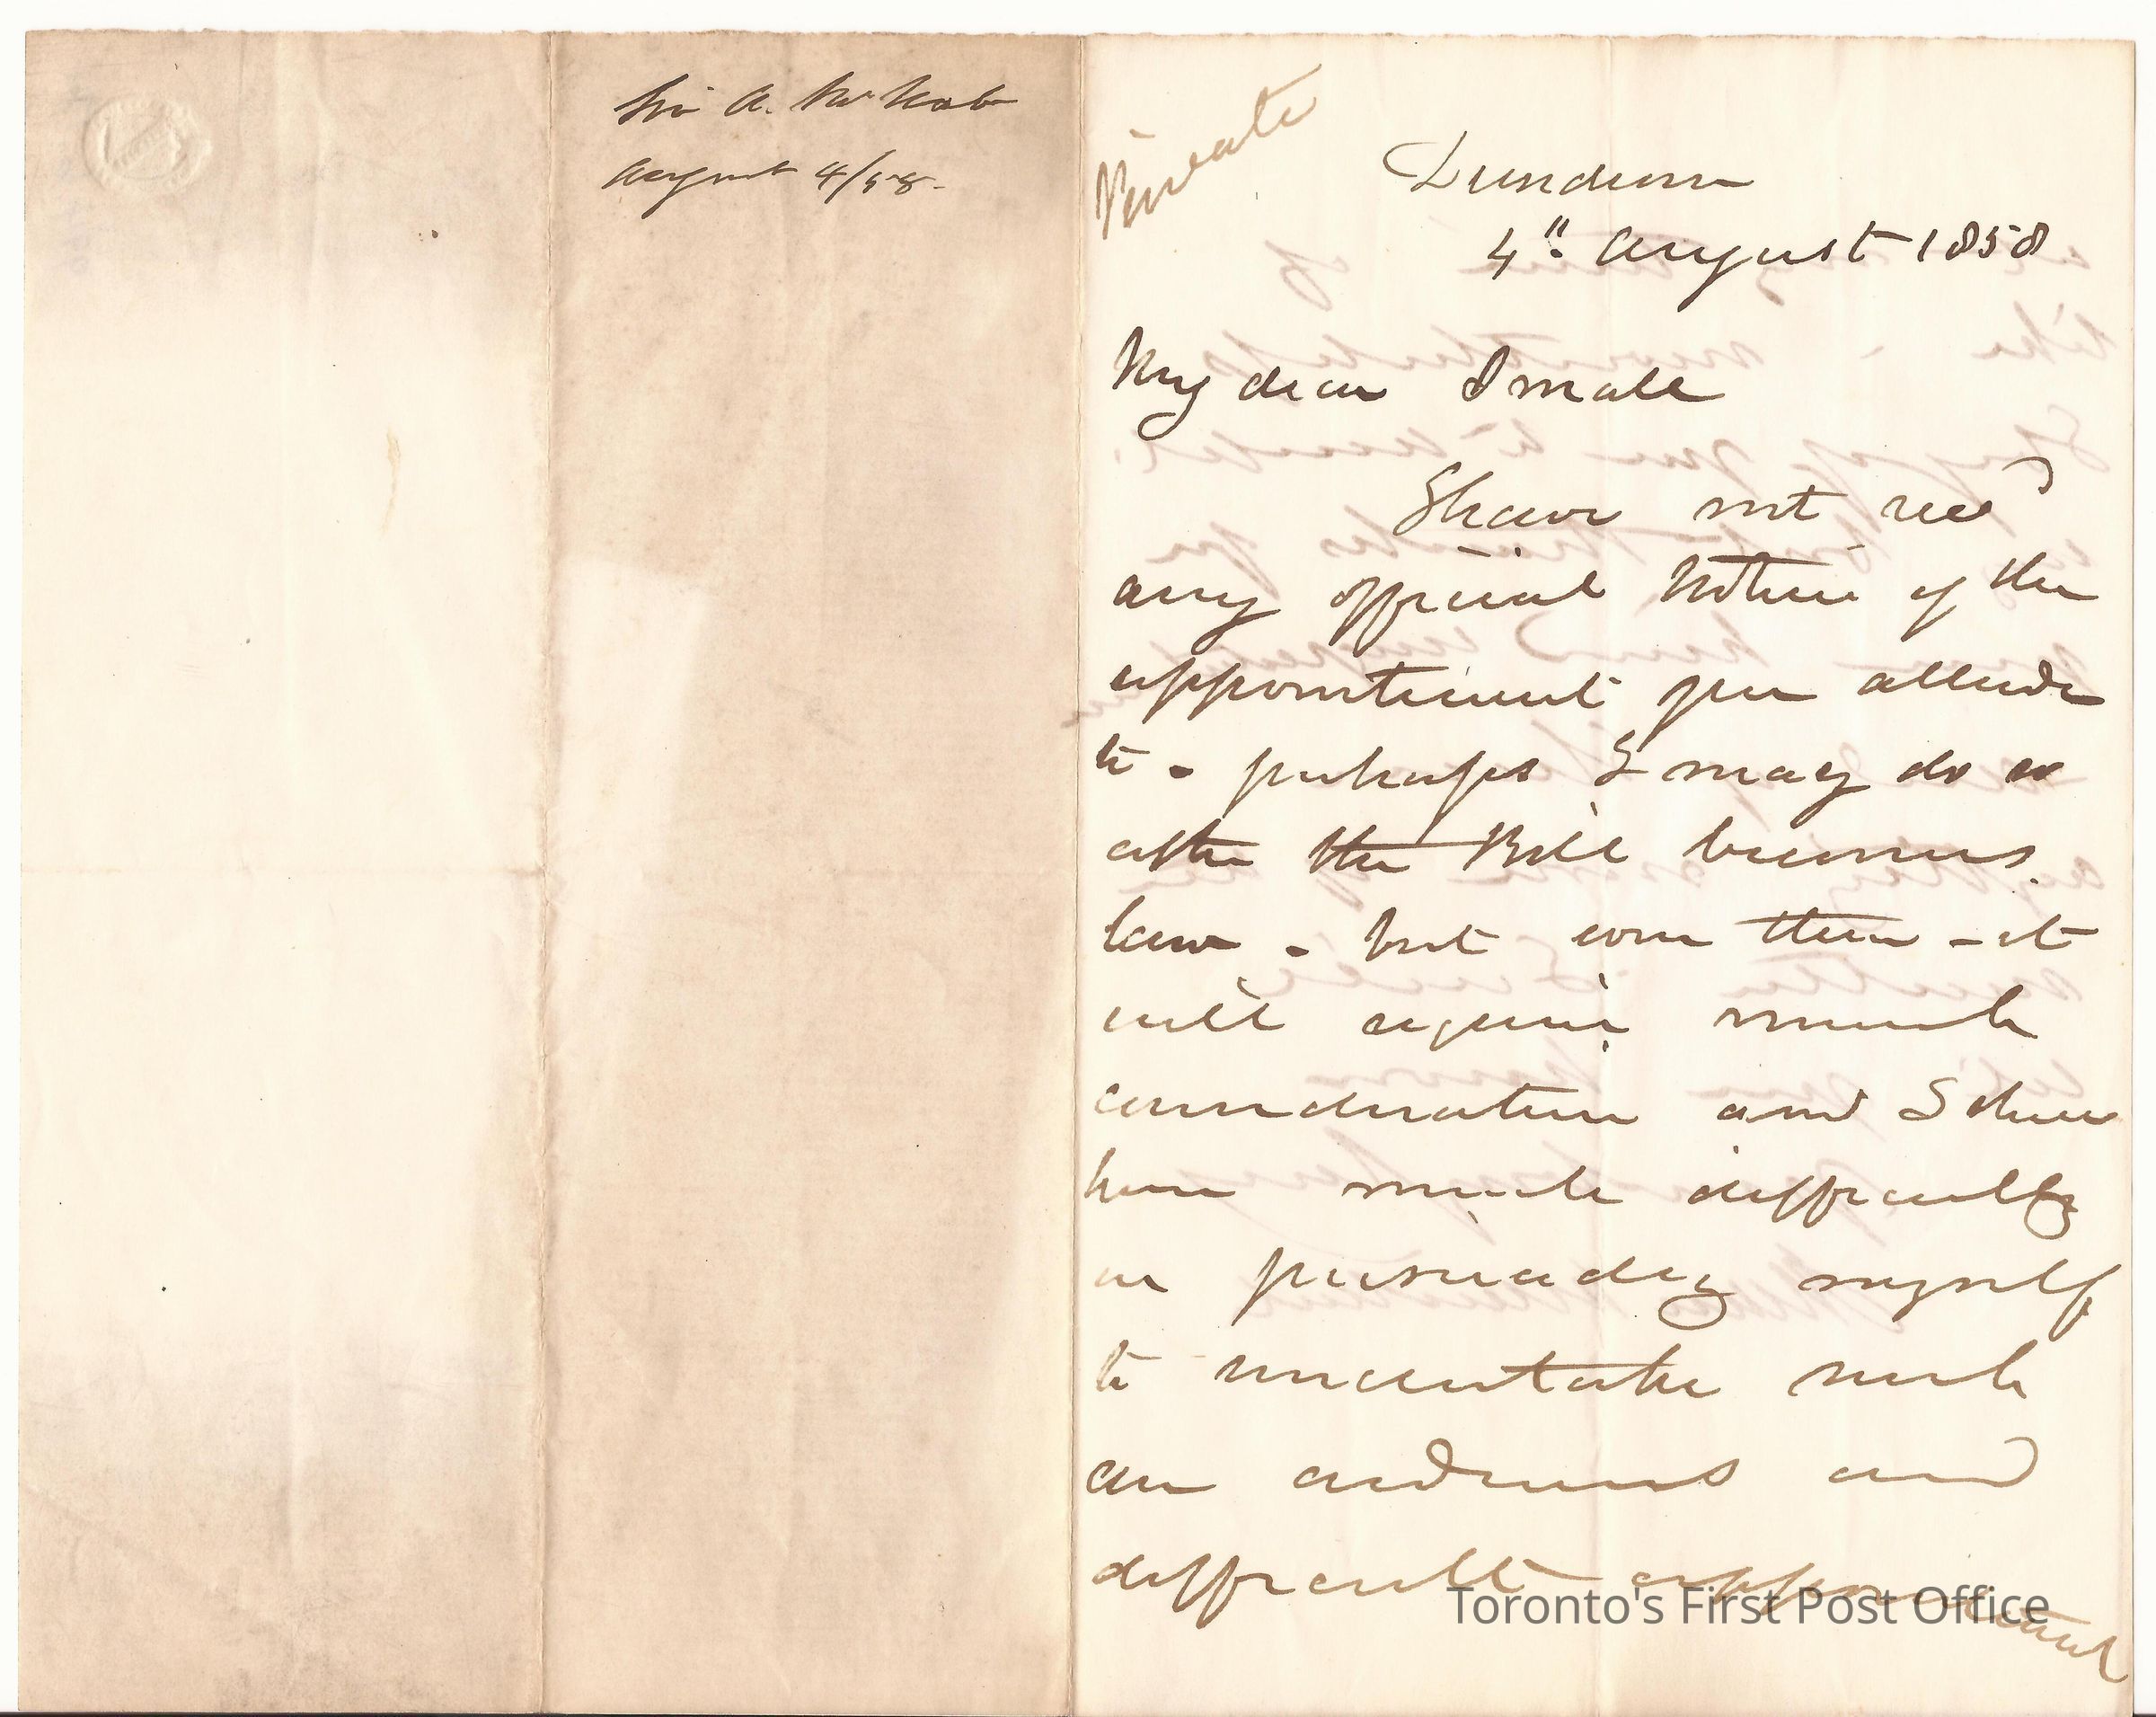 Sir A. McNab
August 4/58.
Private
Dundurn
4" August 1858
My dear Small
I have not recd
any official Notice of the
appointment you allude
to - perhaps I may do so
after the Bill becomes
law - but even then - it
will require much
consideration and I shall
have much difficulty
in persuading myself
to undertake such
an arduous and
difficult appointment
Toronto's First Post Office